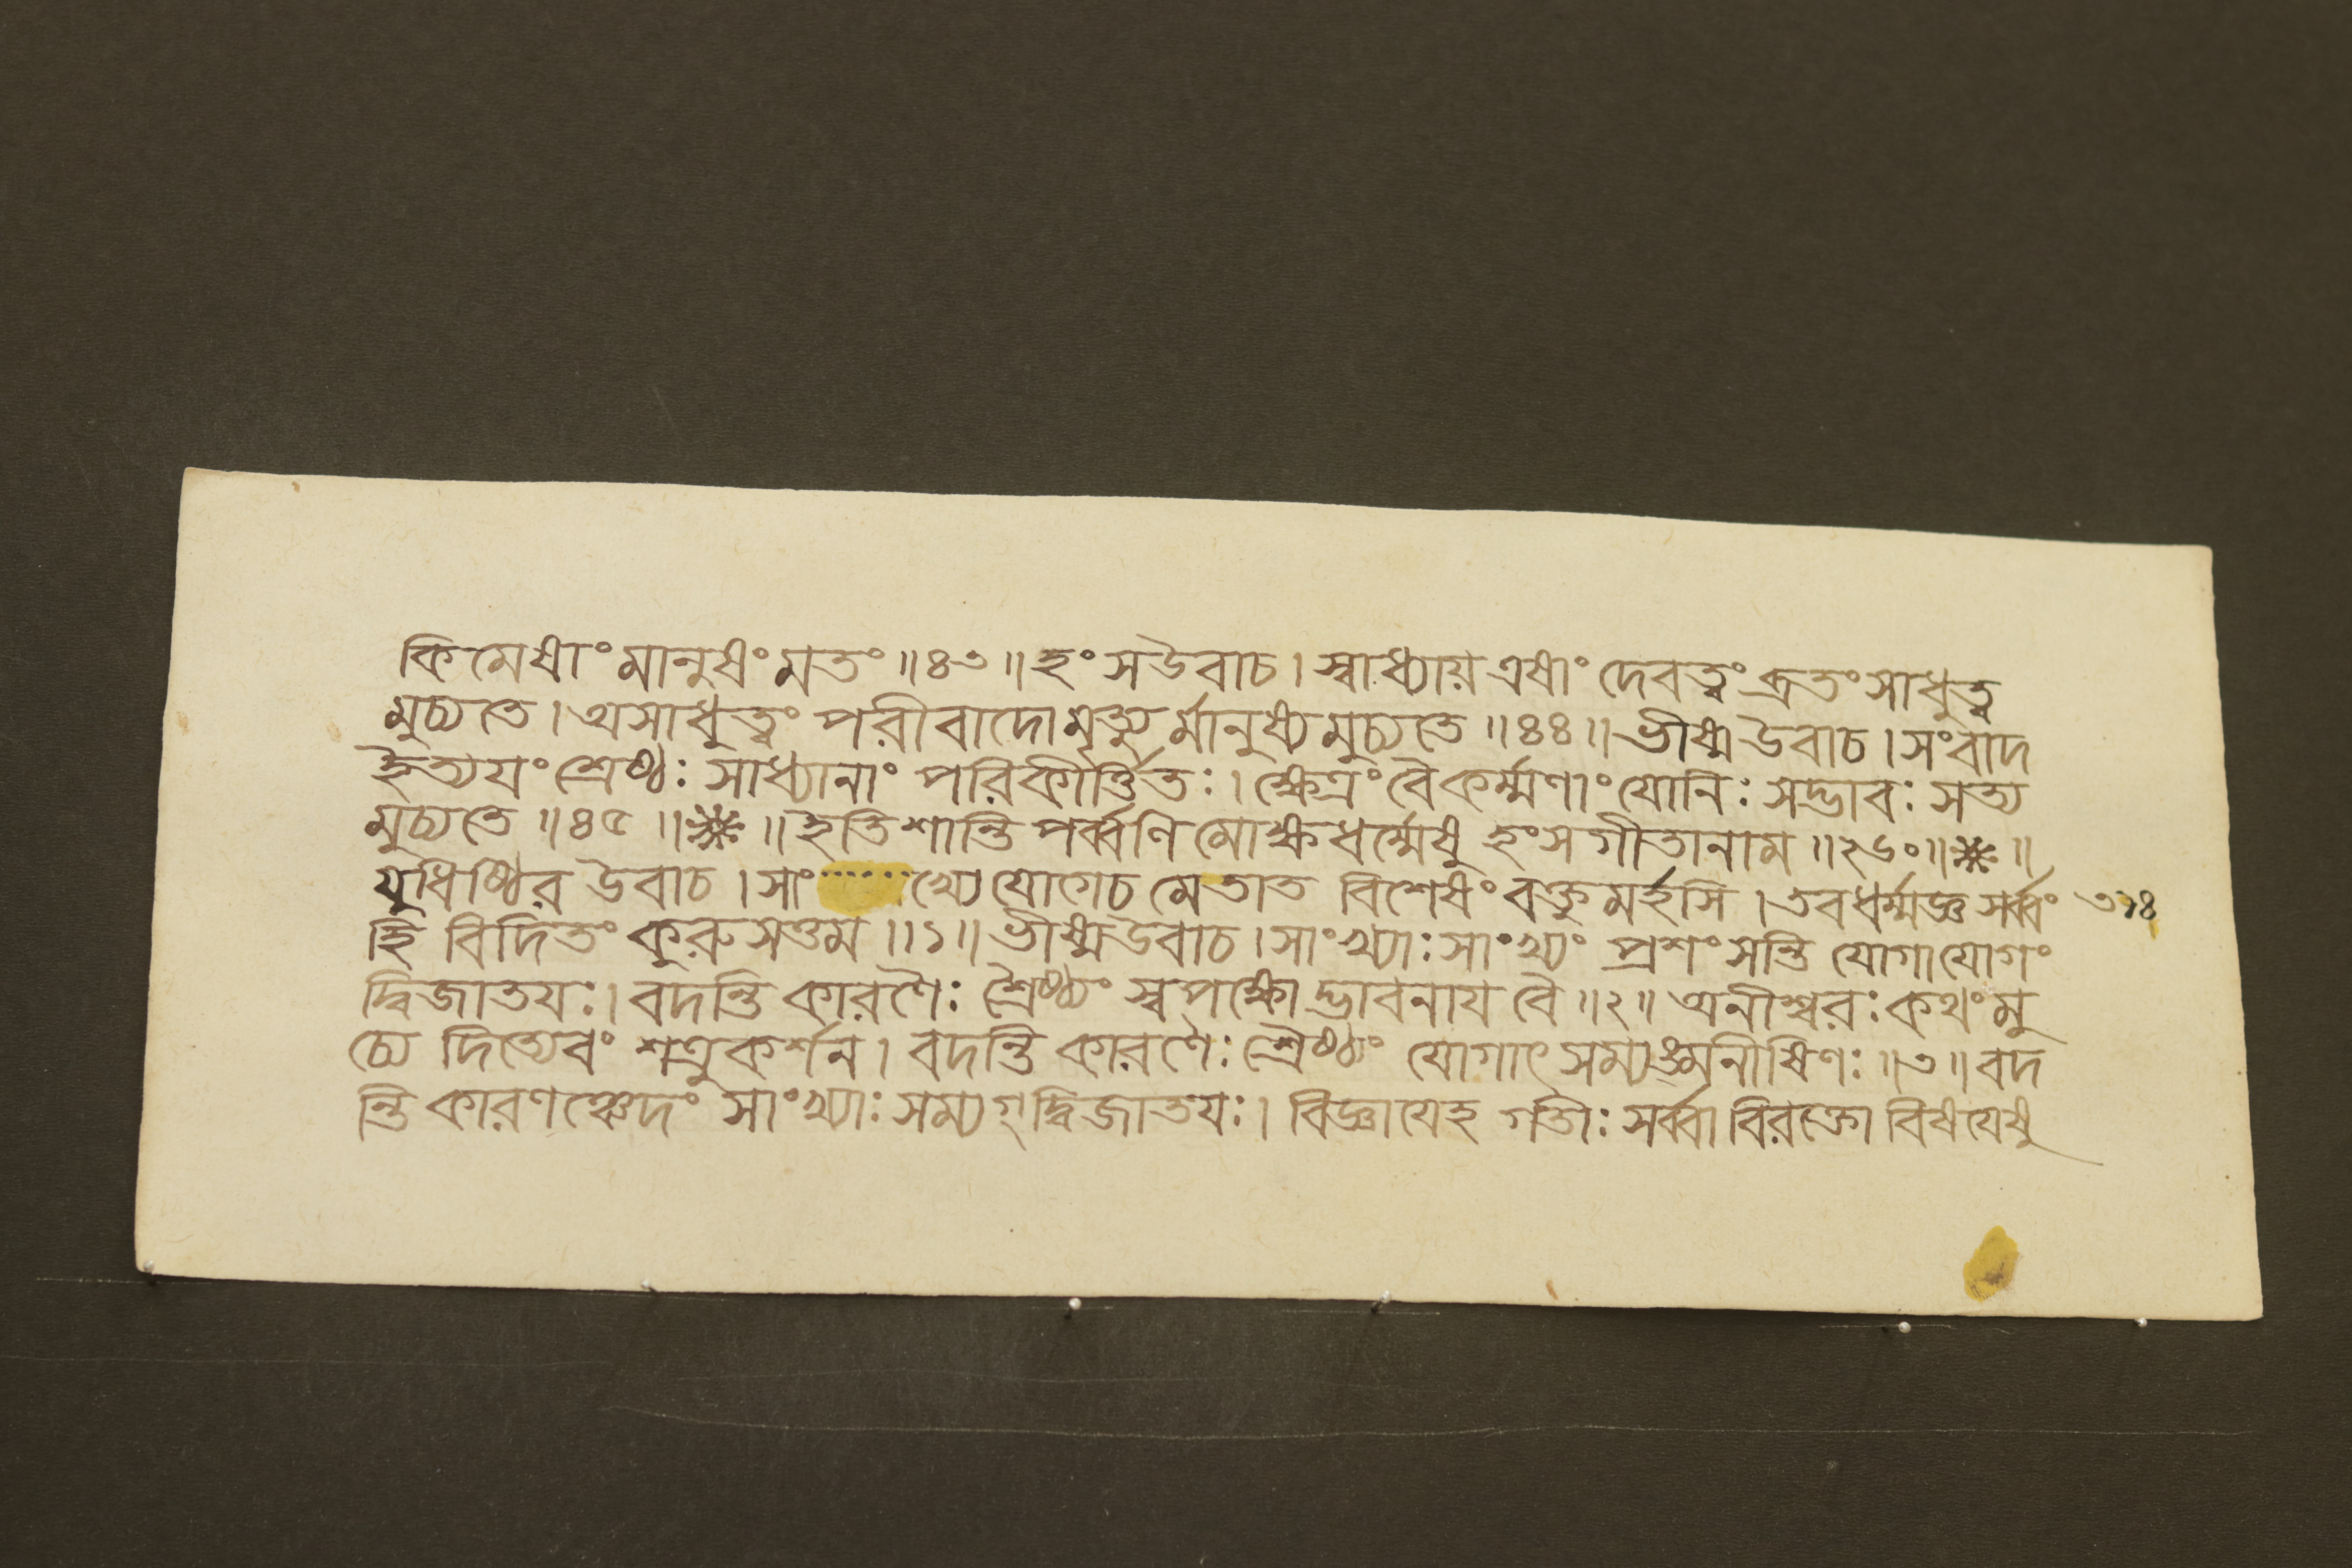 কিমেষাং মানুষং মতং ॥৪৩॥ হংস উবাচ । স্বাধ্যায় এষাং দেবত্বং ব্রতং সাধুত্ব
মুচ্যতে । অসাধুত্বং পরীবাদো মৃত্যুর্মানুষ্যমুচ্যতে ॥৪৪॥ ভীষ্ম উবাচ । সংবাদ
ইত্যয়ং শ্রেষ্ঠঃ সাধ্যানাং পরিকীর্ত্তিতঃ । ক্ষেত্রং বৈ কর্ম্মণাং যোনিঃ সদ্ভাবঃ সত্য
মুচ্যতে ॥৪৫॥ ❋ ॥ ইতি শান্তিপর্ব্বণি মোক্ষধর্ম্মেষু হংসগীতানাম ॥২৬০॥ ❋ ॥
যুধিষ্ঠির উবাচ । সাং······খ্যে যোগে চ মে তাত বিশেষং বক্তুমর্হসি । তব ধর্ম্মজ্ঞ সর্ব্বং ৩১৪
হি বিদিতং কুরুসত্তম ॥১॥ ভীষ্ম উবাচ । সাংখ্যাঃ সাংখ্যং প্রশংসন্তি যোগা যোগং
দ্বিজাতযঃ । বদন্তি কারণৈঃ শ্রৈষ্ঠ্যং স্বপক্ষোদ্ভাবনায বৈ ॥২॥ অনীশ্বরঃ কথং মু
চ্যে দিত্যেবং শত্রুকর্শন । বদন্তি কারণৈঃ শ্রৈষ্ঠ্যং যোগাৎ সম্যঙ্মনীষিণঃ ॥৩॥ বদ
ন্তি কারণঞ্চেদং সাংখ্যাঃ সম্যগ্দ্বিজাতযঃ । বিজ্ঞাযেহ গতীঃ সর্ব্বা বিরক্তো বিষযেষু